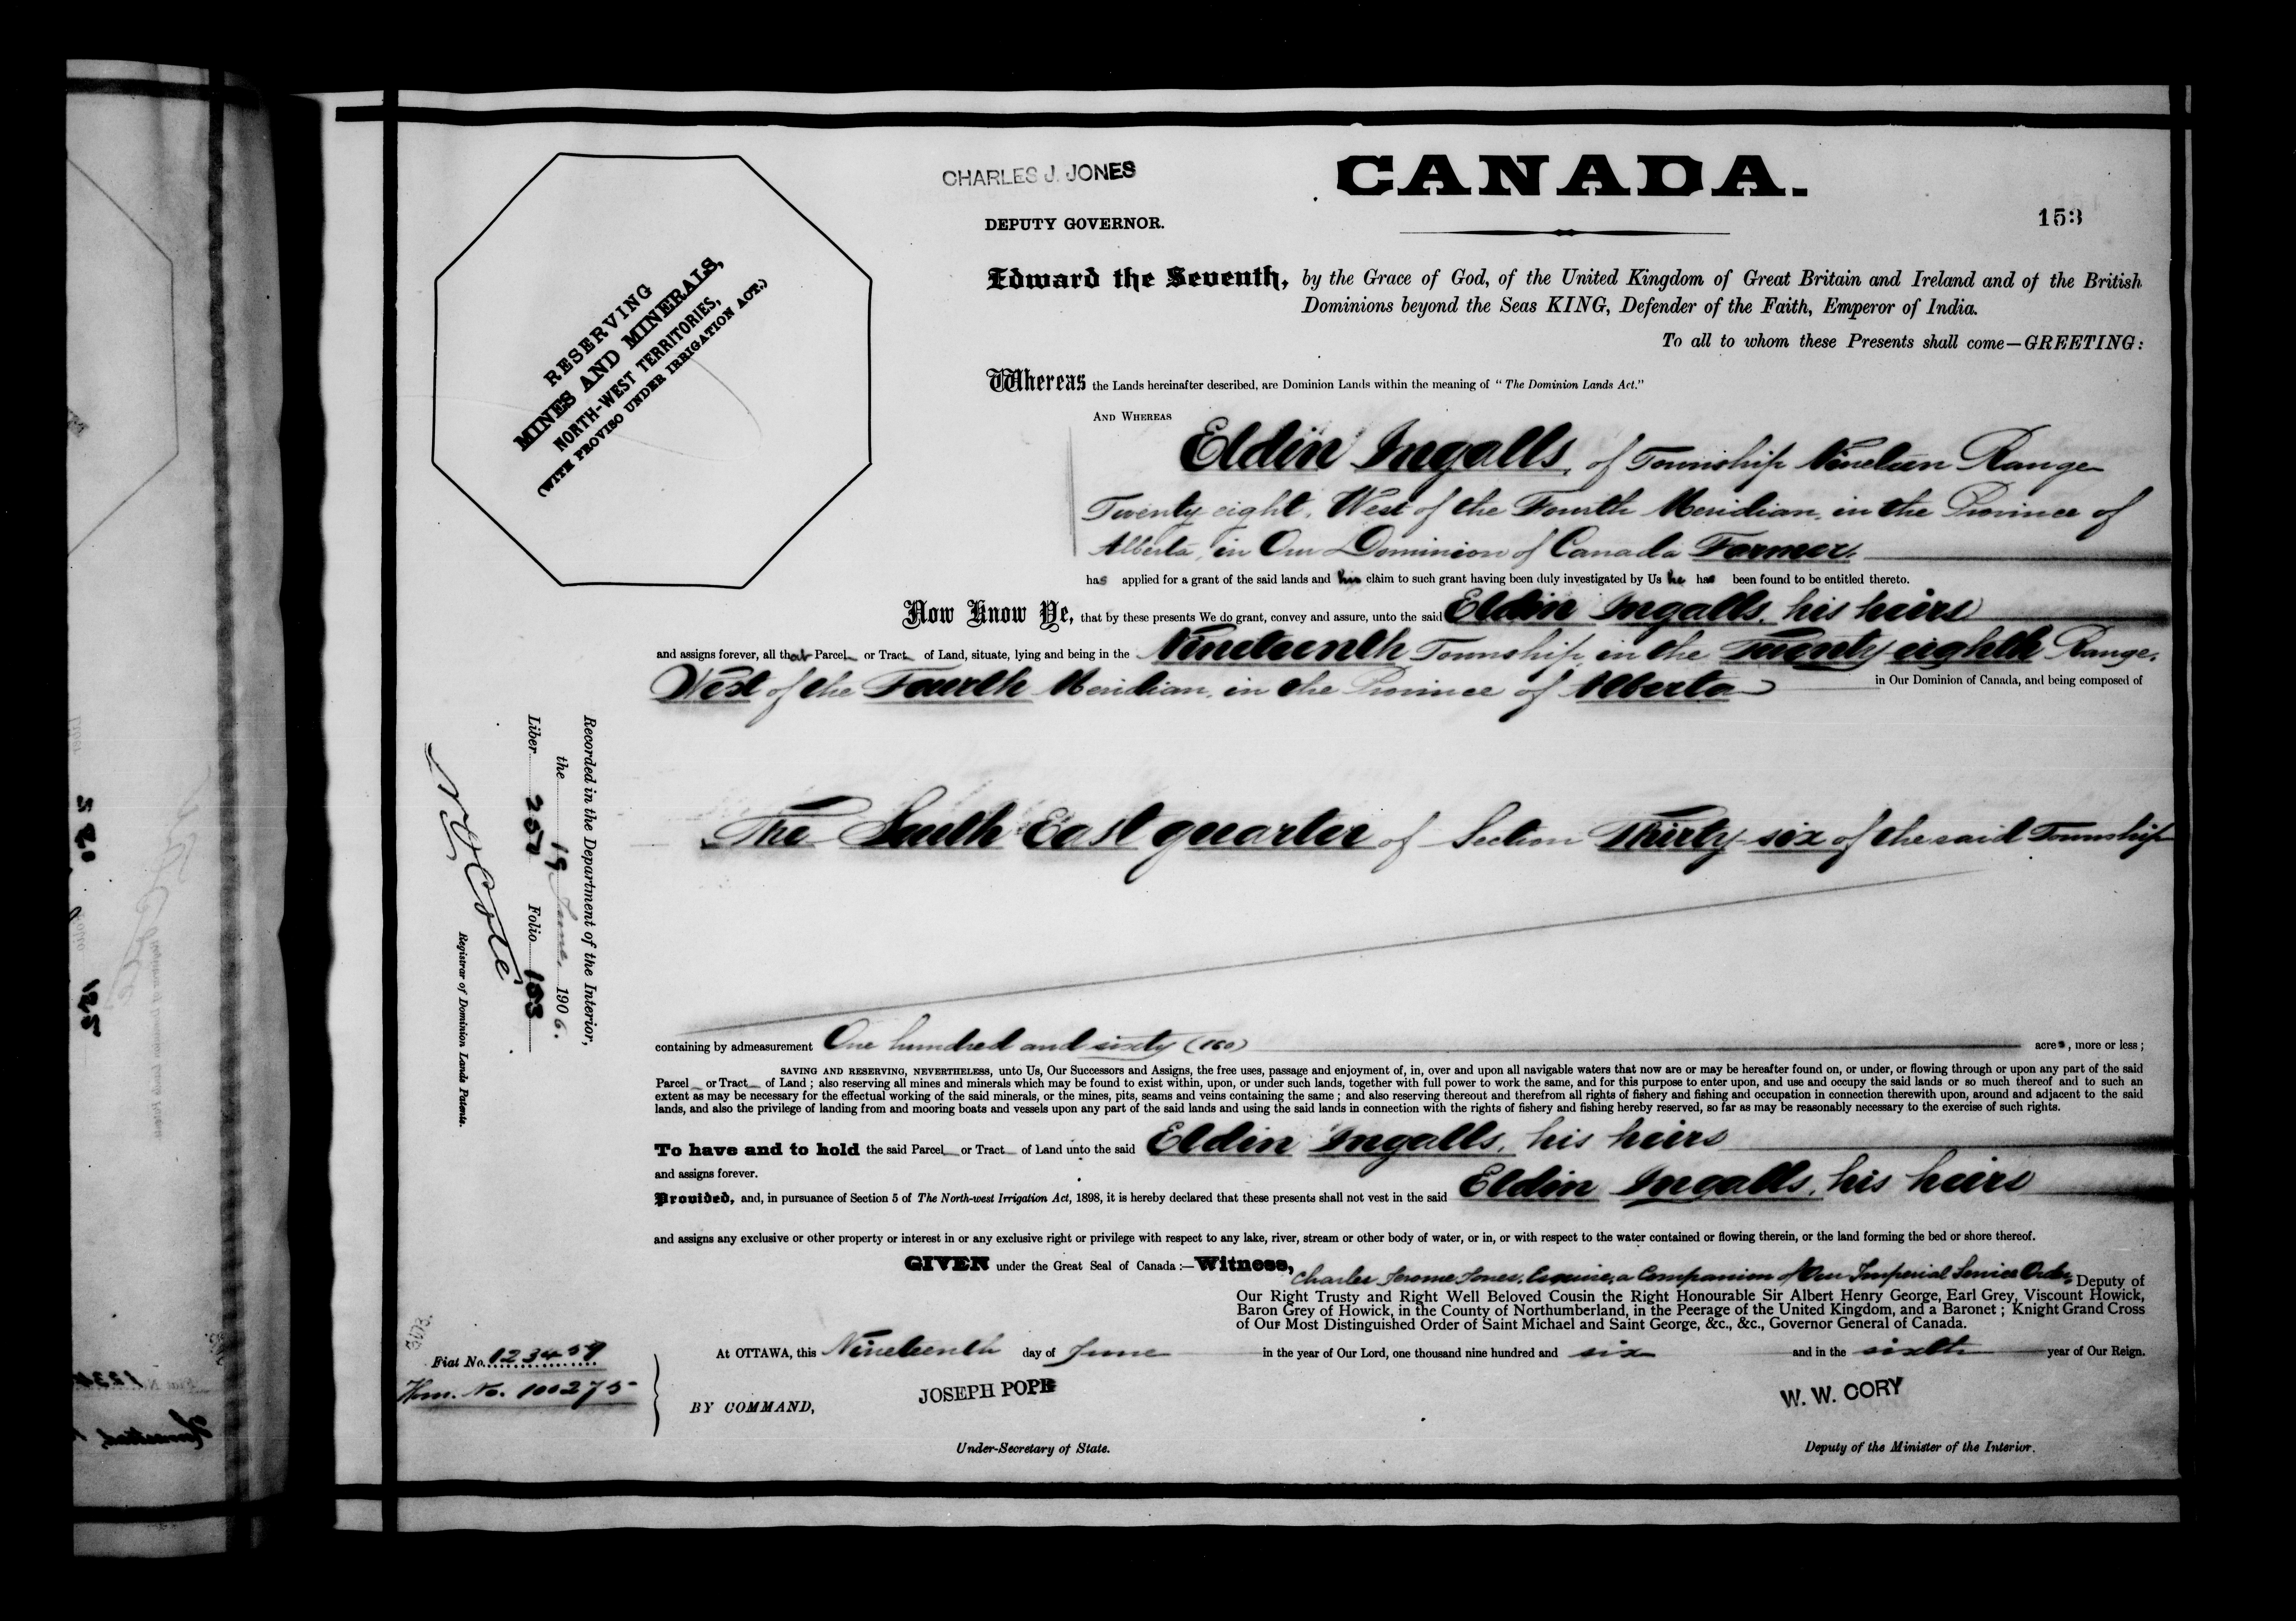 CHARLES J. JONES
DEPUTY GOVERNOR.
CANADA.
153
RESERVING
MINES AND MINERALS,
NORTH-WEST TERRITORIES,
(WITH PROVISO UNDER IRRIGATION ACT.)
Edward the Seventh, by the Grace of God, of the United Kingdom of Great Britain and Ireland and of the British
Dominions beyond the Seas KING, Defender of the Faith, Emperor of India.
To all to whom these Presents shall come—GREETING:
Whereas the Lands hereinafter described, are Dominion Lands within the meaning of "The Dominion Lands Act."
AND WHEREAS
Eldin Ingalls, of Township Nineteen Range
Twenty eight, West of the Fourth Meridian, in the Province of
Alberta, in Our Dominion of Canada Farmer.
has applied for a grant of the said lands and his claim to such grant having been duly investigated by Us he has been found to be entitled thereto.
Now Know Ye, that by these presents We do grant, convey and assure, unto the said Eldin Ingalls, his heirs
and assigns forever, all that Parcel or Tract of Land, situate, lying and being in the Nineteenth Township, in the Twenty eighth Range,
West of the Fourth Meridian, in the Province of Alberta in Our Dominion of Canada, and being composed of
The South East quarter of Section Thirty-six of the said Township
Recorded in the Department of the Interior,
the 19 June, 1906.
Liber Folio 153
Registrar of Dominion Lands Patents.
containing by admeasurement One hundred and sixty (160) acres, more or less;
SAVING AND RESERVING, NEVERTHELESS, unto Us, Our Successors and Assigns, the free uses, passage and enjoyment of, in, over and upon all navigable waters that now are or may be hereafter found on, or under, or flowing through or upon any part of the said
Parcel or Tract of Land; also reserving all mines and minerals which may be found to exist within, upon, or under such lands, together with full power to work the same, and for this purpose to enter upon, and use and occupy the said lands or so much thereof and to such an
extent as may be necessary for the effectual working of the said minerals, or the mines, pits, seams and veins containing the same; and also reserving thereout and therefrom all rights of fishery and fishing and occupation in connection therewith upon, around and adjacent to the said
lands, and also the privilege of landing from and mooring boats and vessels upon any part of the said lands and using the said lands in connection with the rights of fishery and fishing hereby reserved, so far as may be reasonably necessary to the exercise of such rights.
To have and to hold the said Parcel or Tract of Land unto the said Eldin Ingalls, his heirs
and assigns forever.
Provided, and, in pursuance of Section 5 of The North-west Irrigation Act, 1898, it is hereby declared that these presents shall not vest in the said Eldin Ingalls, his heirs
and assigns any exclusive or other property or interest in or any exclusive right or privilege with respect to any lake, river, stream or other body of water, or in, or with respect to the water contained or flowing therein, or the land forming the bed or shore thereof.
GIVEN under the Great Seal of Canada:—Witness, Charles Jerome Jones, Esquire, a Companion of Our Imperial Service Order, Deputy of
Our Right Trusty and Right Well Beloved Cousin the Right Honourable Sir Albert Henry George, Earl Grey, Viscount Howick,
Baron Grey of Howick, in the County of Northumberland, in the Peerage of the United Kingdom, and a Baronet; Knight Grand Cross
of Our Most Distinguished Order of Saint Michael and Saint George, &c., &c., Governor General of Canada.
At OTTAWA, this Nineteenth day of June in the year of Our Lord, one thousand nine hundred and six and in the sixth year of Our Reign.
Fiat No. 123459
Hom. No. 100275
BY COMMAND,
JOSEPH POPE
Under-Secretary of State.
W. W. CORY
Deputy of the Minister of the Interior.